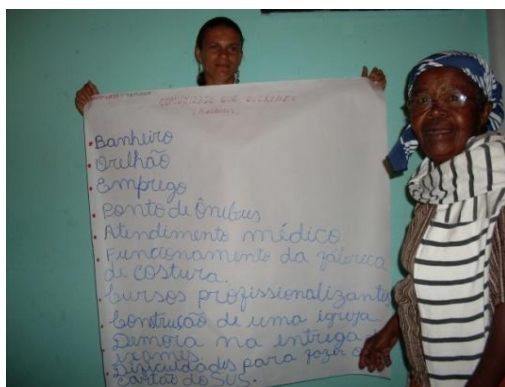 COMUNIDADE QUE QUEREMOS
• Banheiro
• Orelhão
• Emprego
• Ponto de Ônibus
• Atendimento médico
• Funcionamento da fábreca
de costura.
• Cursos profissionalizantes
• Construção de uma igreja
• Demora na entrega
exames
• Dificuldades para fazer o
cartão do SUS.